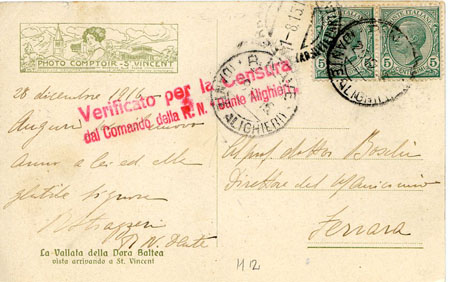 PHOTO COMPTOIR - ST VINCENT
28 dicembre 1916
Verificato per la Censura
dal Comando della R. N. "Dante Alighieri"
Auguri
anno a lei ed alla
gentile signora
R. N. Dante
La Vallata della Dora Baltea
vista arrivando a St. Vincent
Al prof. dottor Boschi
Direttore del Manicomio
Ferrara
H 12
POSTE ITALIANE
5 5 5
ALIGHIERI